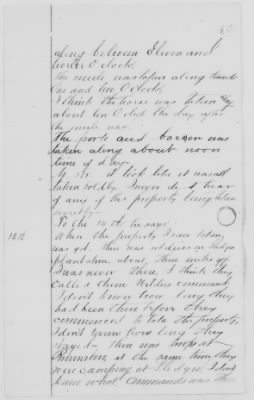 60
along between Eleven and
twelve O'clock.
The mule was taken along toward
One and two O'clock
I think the horse was taken
about ten O'clock the day after
the mule was
The pork and bacon was
taken along about noon
time of day.
No sir it look like it was all
taken boldly I never did hear
of any of the property being taken
secretly.
To the 14th he says:
14th.
When the property I saw taken,
was got, there was soldiers on Hodges
plantation, about, three miles off
I was never there. I think they
called them Wilders command.
I don't know how long they
had been there before they
commenced to take the property.
I don't know how long they
stayed. There was troops at
at the same time they
were camping at Hodges. I don't
know what command was